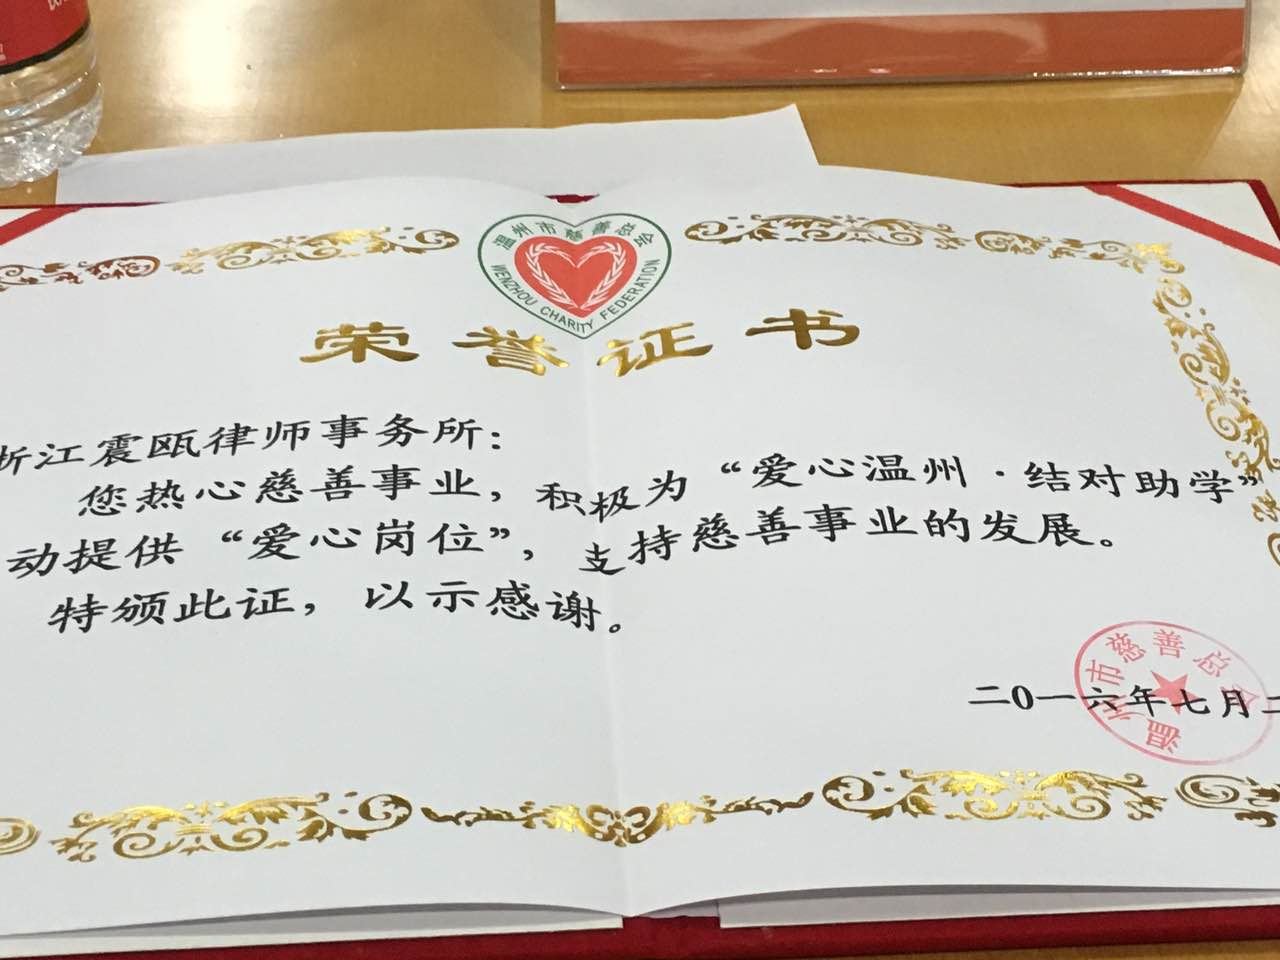 温州市慈善总会
WENZHOU CHARITY FEDERATION
荣誉证书
浙江震瓯律师事务所：
您热心慈善事业，积极为“爱心温州·结对助学”
动提供“爱心岗位”，支持慈善事业的发展。
特颁此证，以示感谢。
温州市慈善总会
二0一六年七月二